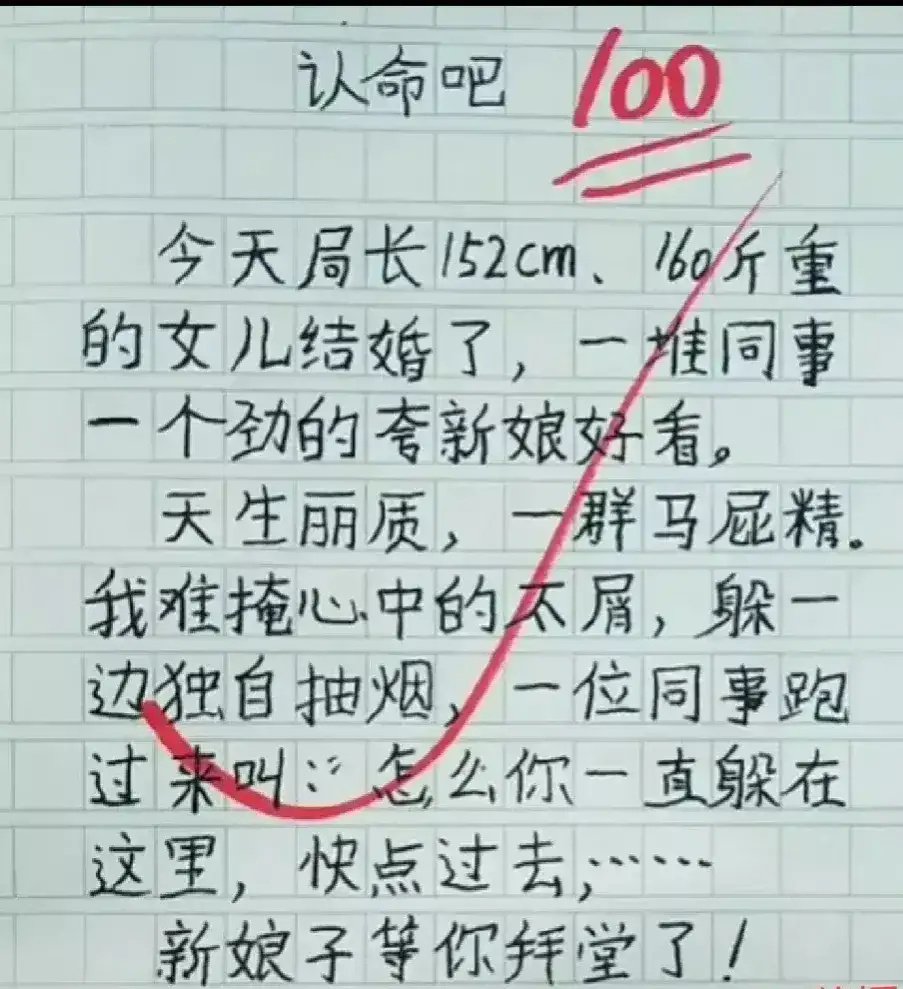 认命吧 100
今天局长152cm、160斤重
的女儿结婚了，一堆同事
一个劲的夸新娘好看。
天生丽质，一群马屁精。
我难掩心中的不屑，躲一
边独自抽烟，一位同事跑
过来叫："怎么你一直躲在
这里，快点过去，……
新娘子等你拜堂了！